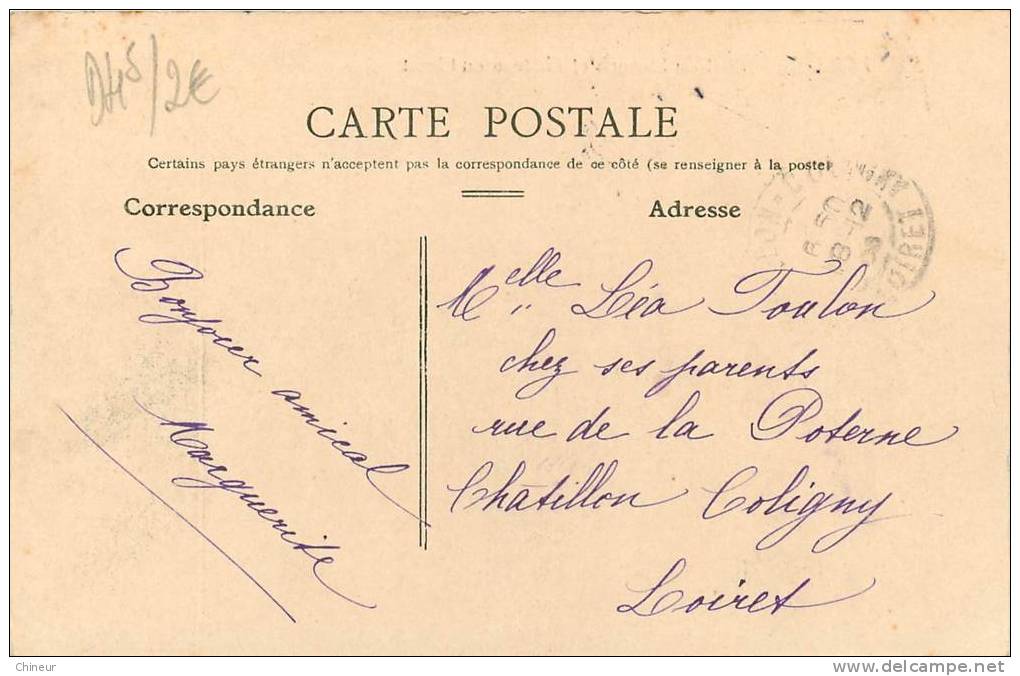 D45/2€
CARTE POSTALE
Certains pays étrangers n'acceptent pas la correspondance de ce côté (se renseigner à la poste)
Correspondance
Adresse
Bonjour amical
Marguerite
Melle Léa Toulon
chez ses parents
rue de la Poterne
Chatillon Coligny
Loiret
LOIRET
Chineur
delcampe.net